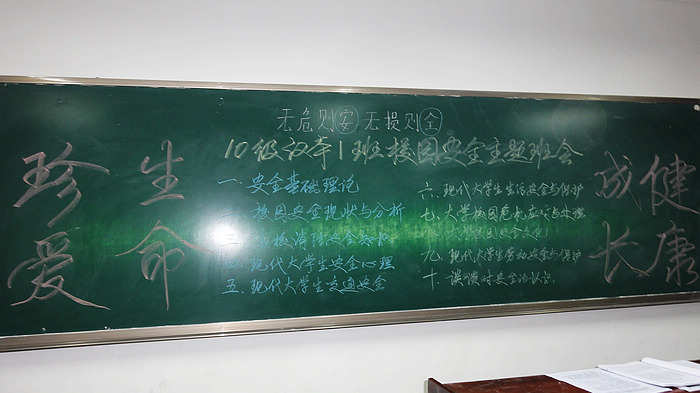 无危则安 无损则全
10级汉本1班校园安全主题班会
珍爱
生命
一、安全基础理论
二、校园安全现状与分析
三、高校消防安全知识
四、现代大学生安全心理
五、现代大学生交通安全
六、现代大学生生活安全与保护
七、大学校园危机应对与处理
九、现代大学生劳动安全与保护
十、谈谈对安全的认识
健康
成长